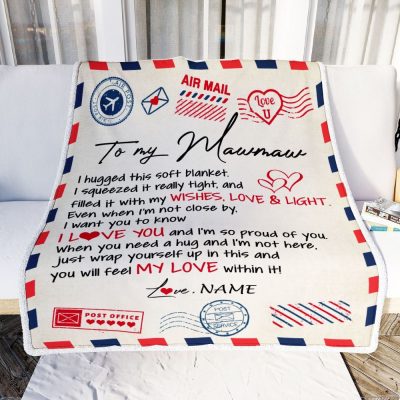 AIR MAIL
Love U
To my Mawmaw
I hugged this soft blanket.
I squeezed it really tight, and
filled it with my WISHES, LOVE & LIGHT.
Even when I'm not close by.
I want you to know
I LOVE YOU and I'm so proud of you.
When you need a hug and I'm not here,
just wrap yourself up in this and
you will feel MY LOVE within it!
Love, NAME
POST OFFICE
POST
SERVICE